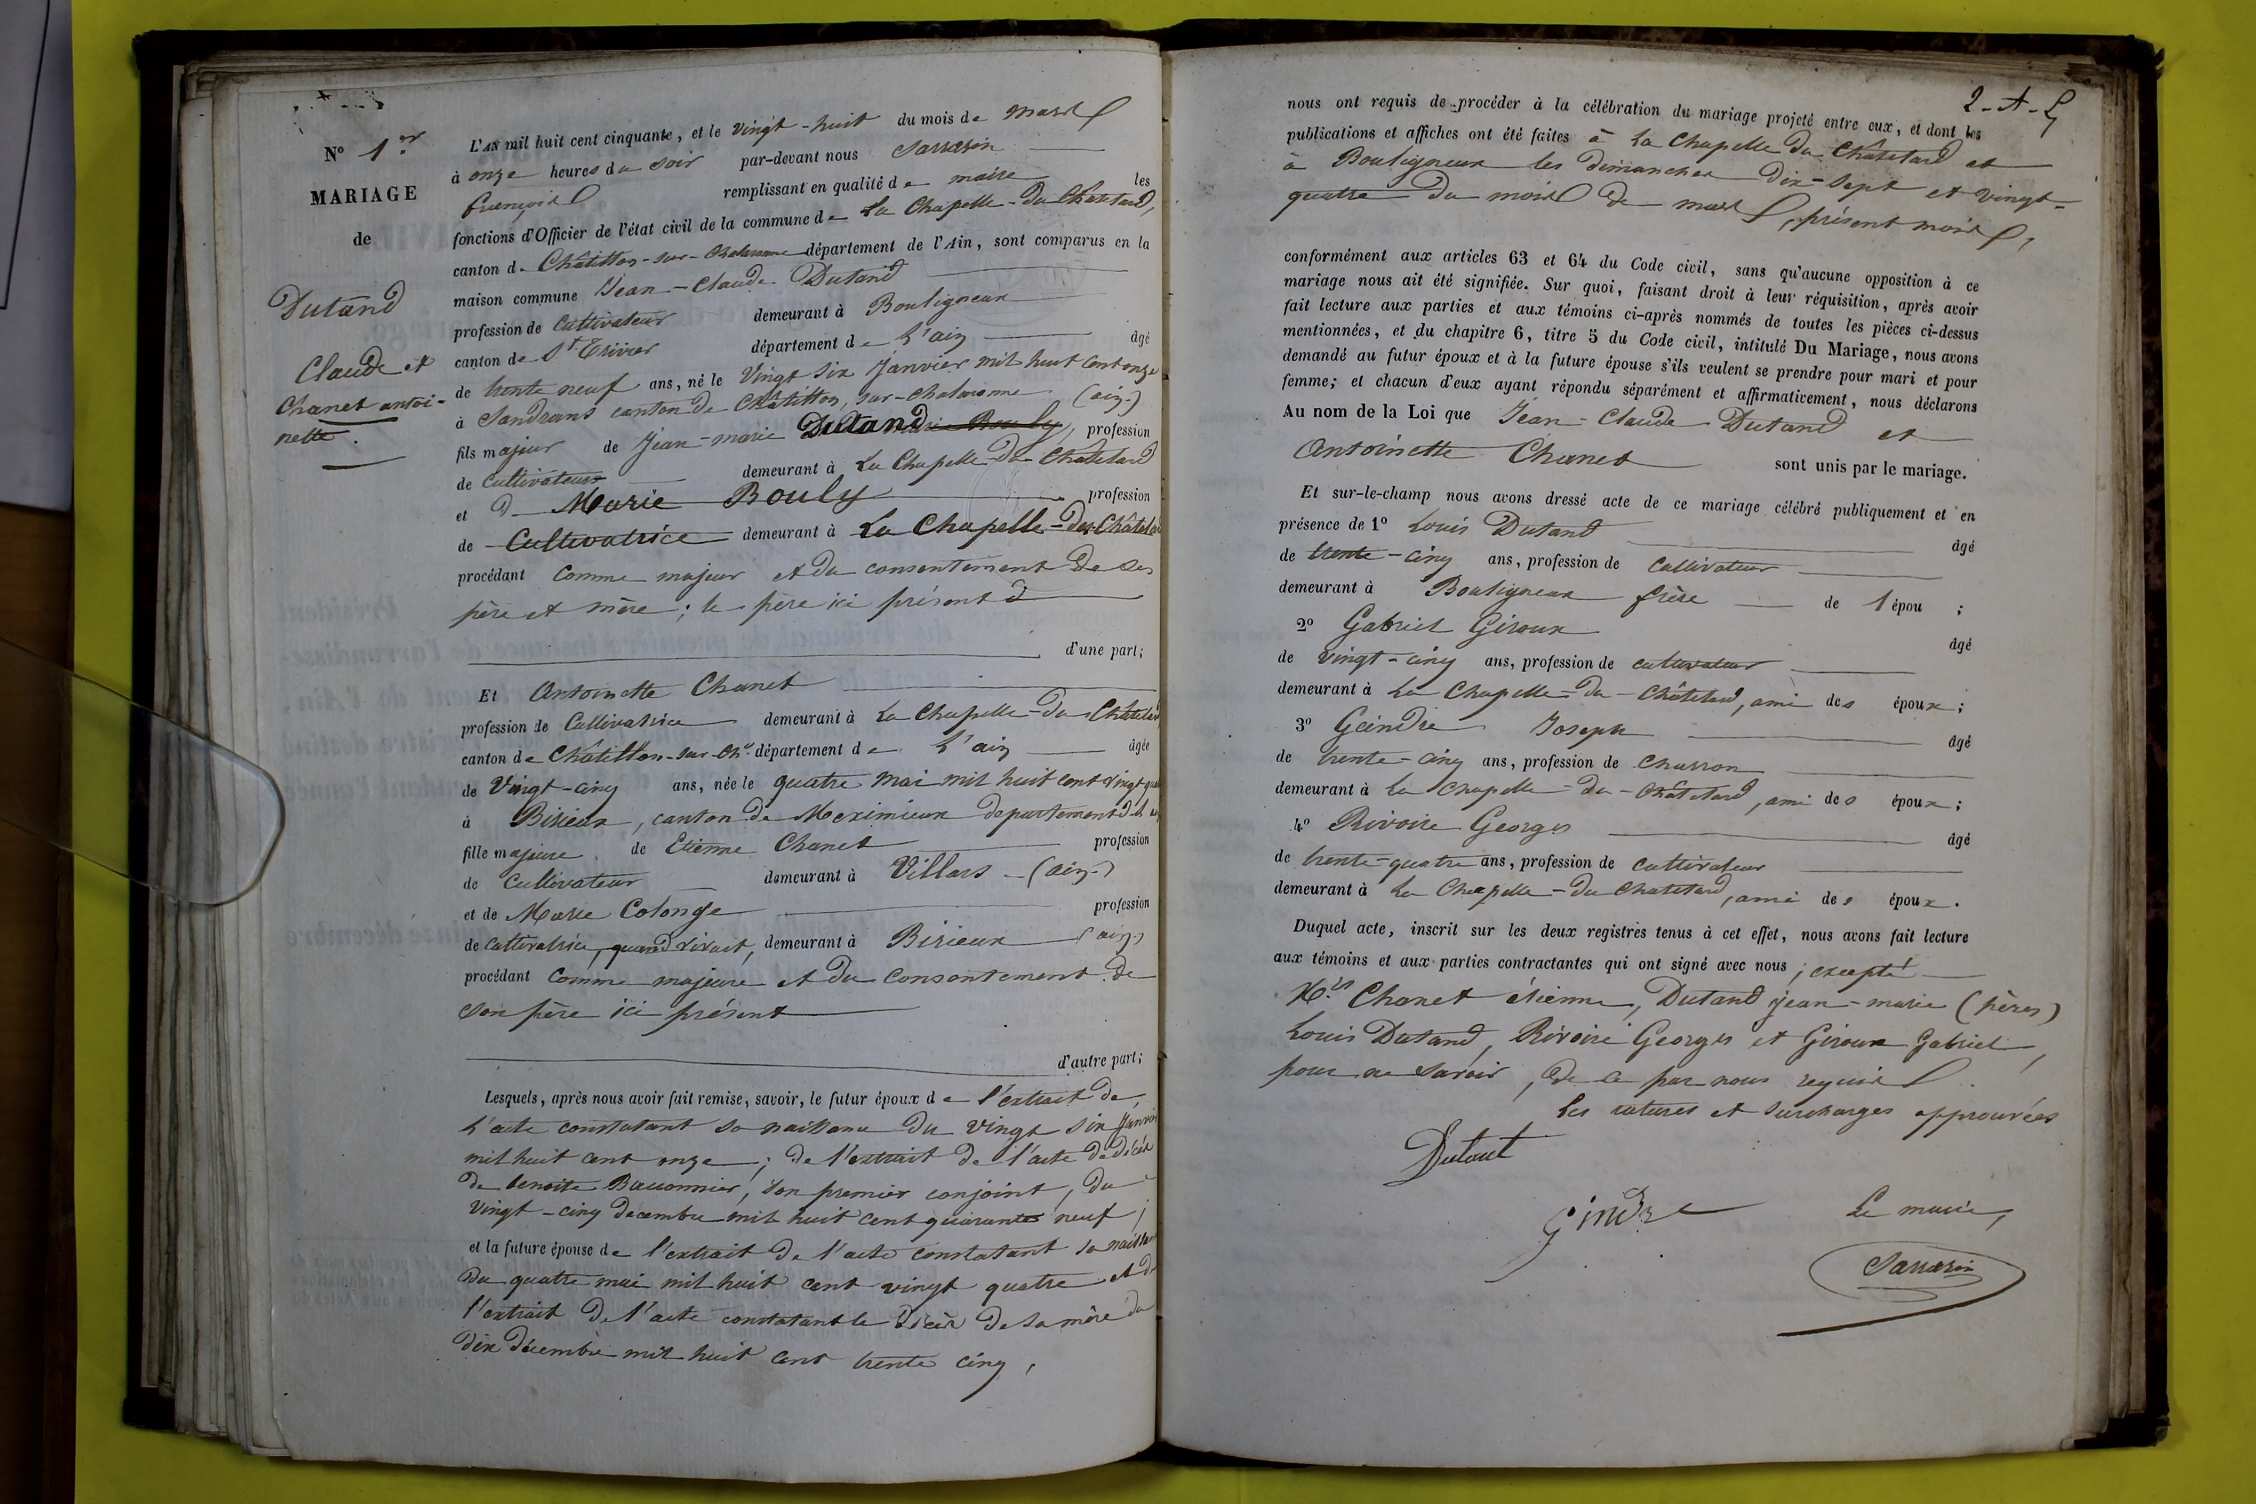 N° 1er
MARIAGE
de
Dutand
Claude et
Chanet antoi-
nette.
L'AN mil huit cent cinquante, et le vingt-huit du mois de mars
à onze heures du soir par-devant nous Sarrasin
françois remplissant en qualité de maire les
fonctions d'Officier de l'état civil de la commune de La Chapelle-du Châtelard,
canton de Châtillon-sur-Chalaronne département de l'Ain, sont comparus en la
maison commune Jean-Claude Dutand
profession de Cultivateur demeurant à Bouligneux
canton de St Trivier département de L'ain âgé
de trente neuf ans, né le vingt six Janvier mil huit cent onze
à Sandrans canton de Châtillon, sur-Chalaronne (ain)
fils majeur de Jean-marie Dutand, profession
de Cultivateur demeurant à La Chapelle-du-Châtelard
et D Marie Bouly profession
de Cultivatrice demeurant à La Chapelle-du-Châtelar
procédant Comme majeur et du consentement de ses
père et mère; le père ici présent d
d'une part;
Et Antoinette Chanet
profession de Cultivatrice demeurant à La Chapelle-du Châtelard
canton de Châtillon-sur-Ch. département de L'ain âgée
de Vingt-cinq ans, née le quatre mai mil huit cent vingt-qua
à Birieux, canton de Meximieux departement de l'ain
fille majeure de Etienne Chanet profession
de Cultivateur demeurant à Villars-(ain)
et de Marie Colonge profession
de Cultivatrice, quand vivait, demeurant à Birieux (ain)
procédant Comme majeure et du consentement de
son père ici présent
d'autre part;
Lesquels, après nous avoir fait remise, savoir, le futur époux de l'extrait de
L'acte constatant sa naissance du vingt six Janvier
mil huit cent onze; de l'extrait de l'acte de décès
de benoite Bauonnier, son premier conjoint, du
vingt-cinq décembre mil huit cent quarante neuf;
et la future épouse de l'extrait de l'acte constatant sa naissan
du quatre mai mil huit cent vingt quatre et de
l'extrait de l'acte constatant le décès de sa mère du
dix décembre mil huit cent trente cinq,
2-A-
nous ont requis de procéder à la célébration du mariage projeté entre eux, et dont les
publications et affiches ont été faites à La Chapelle du Châtelard et
à Bouligneux les dimanches dix-sept et vingt-
quatre du mois de mars, présent mois,
conformément aux articles 63 et 64 du Code civil, sans qu'aucune opposition à ce
mariage nous ait été signifiée. Sur quoi, faisant droit à leur réquisition, après avoir
fait lecture aux parties et aux témoins ci-après nommés de toutes les pièces ci-dessus
mentionnées, et du chapitre 6, titre 5 du Code civil, intitulé Du Mariage, nous avons
demandé au futur époux et à la future épouse s'ils veulent se prendre pour mari et pour
femme; et chacun d'eux ayant répondu séparément et affirmativement, nous déclarons
Au nom de la Loi que Jean-Claude Dutand et
Antoinette Chanet sont unis par le mariage.
Et sur-le-champ nous avons dressé acte de ce mariage célébré publiquement et en
présence de 1° Louis Dutand âgé
de trente-cinq ans, profession de cultivateur
demeurant à Bouligneux frère de l épou ;
2° Gabriel Giroux âgé
de vingt-cinq ans, profession de cultivateur
demeurant à La Chapelle-du-Châtelard, ami des époux;
3° Geindre Joseph âgé
de trente-cinq ans, profession de charron
demeurant à La Chapelle-du-Châtelard, ami des époux;
4° Rivoire Georges âgé
de trente-quatre ans, profession de cultivateur
demeurant à La Chapelle-du Chatelard, ami des époux.
Duquel acte, inscrit sur les deux registres tenus à cet effet, nous avons fait lecture
aux témoins et aux parties contractantes qui ont signé avec nous, excepté
Chanet étienne, Dutand jean-marie (pères)
Louis Dutand, Rivoire Georges et Giroux Gabriel,
pour ne savoir, de ce par nous requis.
Les ratures et surcharges approuvées
Dutant
gindre
Le maire,
Sarrasin